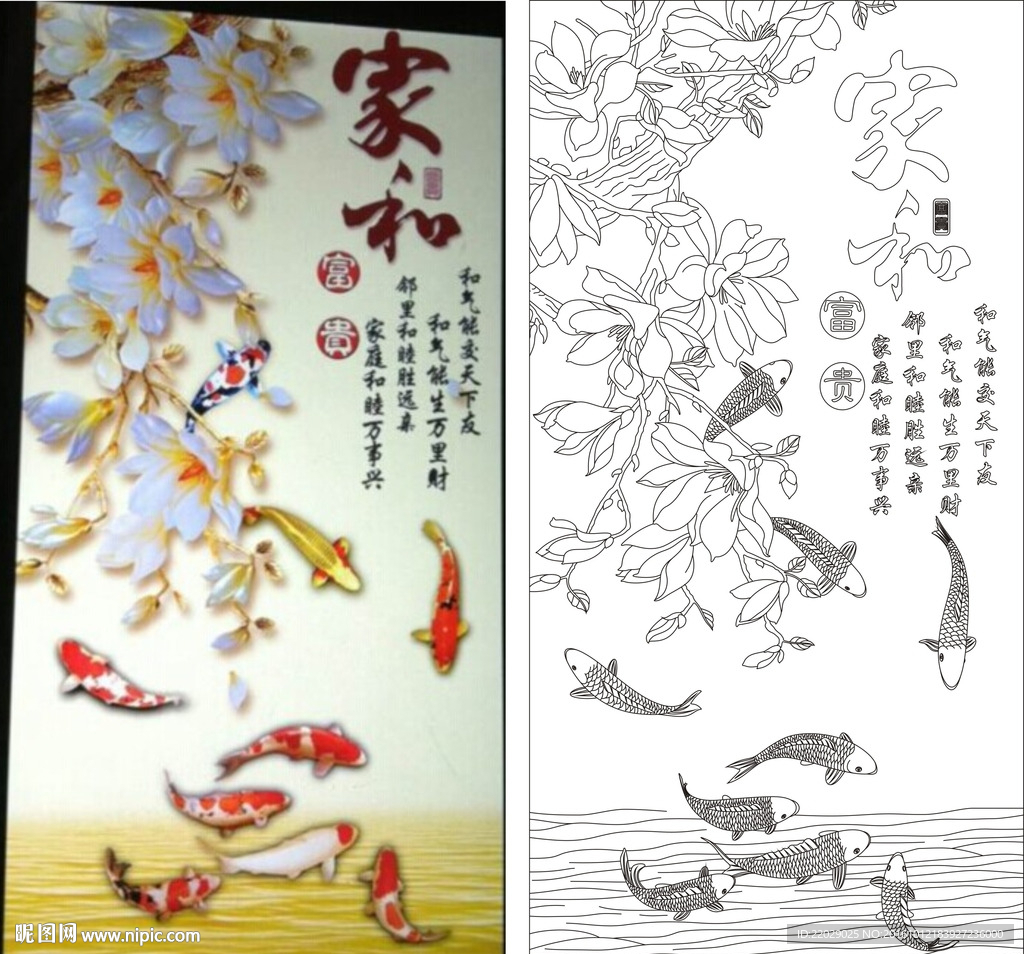 家和
富貴
和气能交天下友
和气能生万里财
邻里和睦胜远亲
家庭和睦万事兴
昵图网 www.nipic.com
家和
富贵
和气能交天下友
和气能生万里财
邻里和睦胜远亲
家庭和睦万事兴